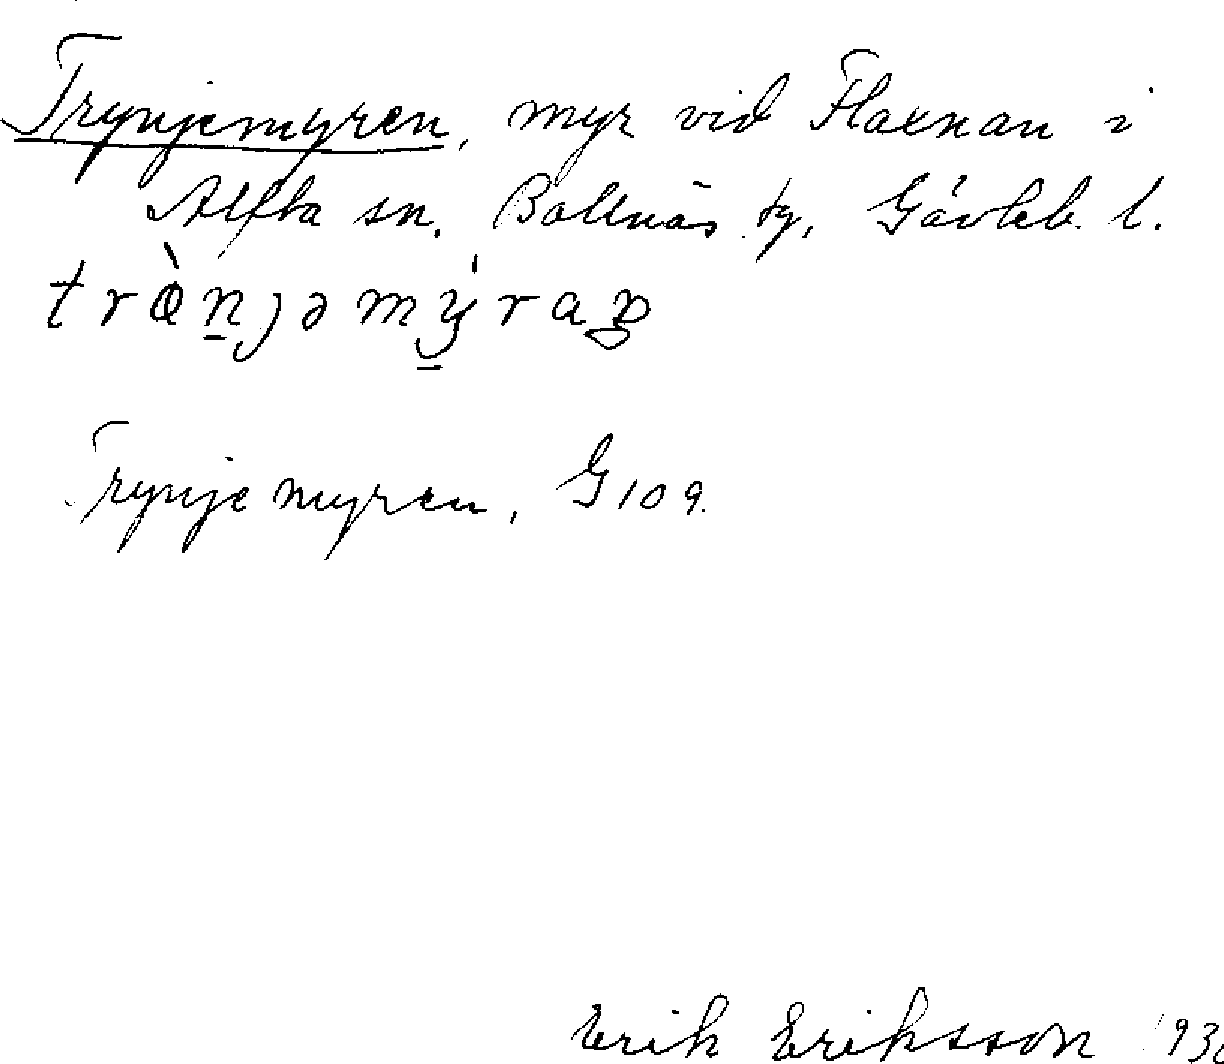 Trynjemyren, myr vid Flaxnan i
Alfta sn. Bollnäs tg, Gävleb. l.

Trynjemyren, G109.
Erik Eriksson